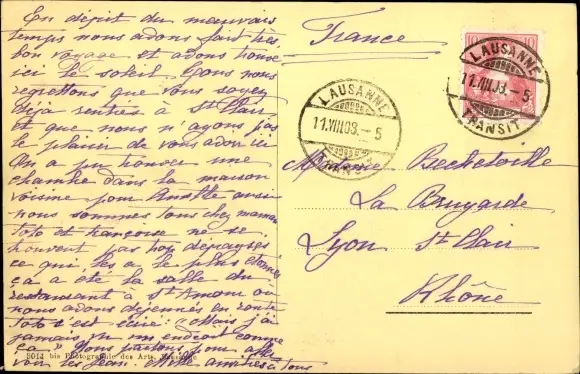 En dépit du mauvais
temps nous avons fait très
bon voyage et avons trouvé
ici le soleil. Nous nous
regrettons que vous soyez
déjà rentrés à St Clair
et que nous n'ayons pas
le plaisir de vous avoir ici
On a pu trouver une
chambre dans la maison
voisine pour ainsi
nous sommes tous chez maman
Toto et Françoise ne se
trouvent pas trop dépaysés
ce qui les a le plus étonnés
ça a été la salle du
restaurant à St Amour où
nous avons déjeuné en route
Toto s'est écrié : "Mais j'ai
jamais vu un endroit comme
ça". Nous partons pour aller
voir les Jean. Mille amitiés à tous
5011 bis Photographie des Arts,
France
LAUSANNE
11.VIII.09.-5
TRANSIT
10
LAUSANNE
11.VIII.09.-5
TRANSIT
Madame Becheloille
La Bruyarde
Lyon St Clair
Rhône